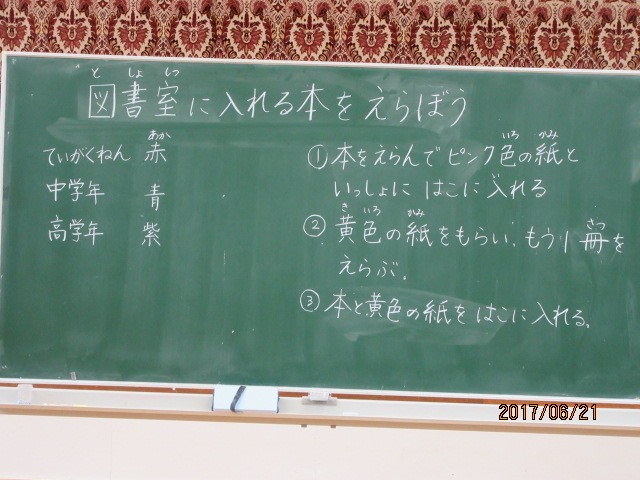 としょしつ
図書室に入れる本をえらぼう
あか
ていがくねん 赤
中学年 青
高学年 紫
いろ かみ
①本をえらんでピンク色の紙と
いっしょに はこに入れる
き いろ かみ さつ
②黄色の紙をもらい、もう1冊を
えらぶ。
③本と黄色の紙をはこに入れる。
2017/06/21